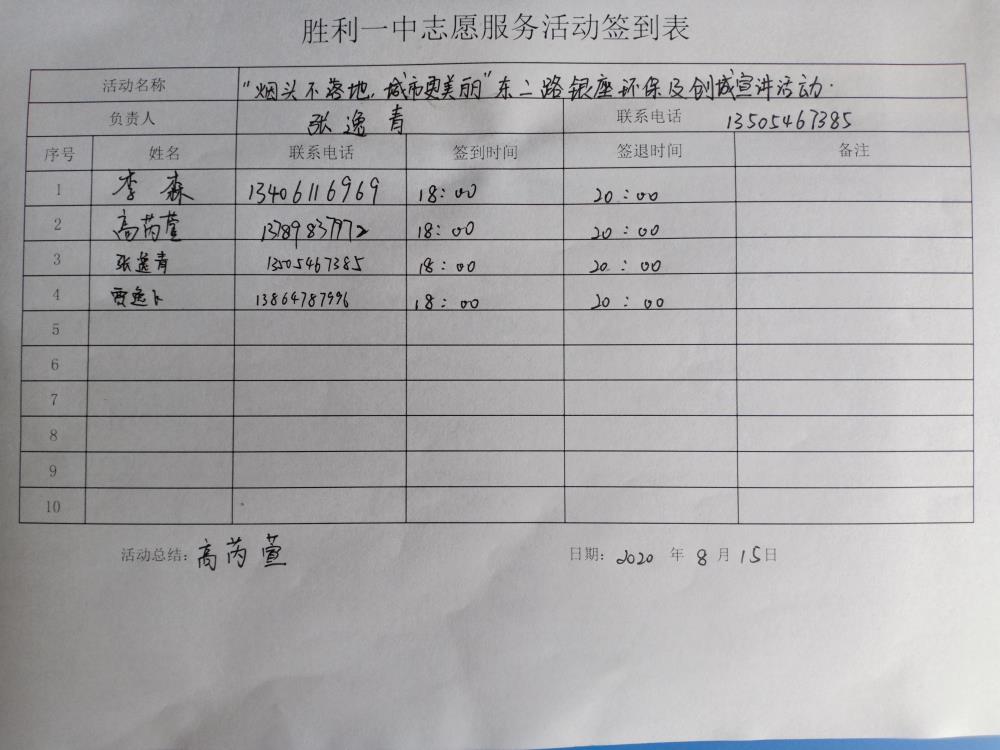 胜利一中志愿服务活动签到表
活动名称 "烟头不落地,城市更美丽"东二路银座环保及创城宣讲活动.
负责人 张逸青 联系电话 13505467385
序号 姓名 联系电话 签到时间 签退时间 备注
1 李森 13406116969 18:00 20:00
2 高芮萱 13789837972 18:00 20:00
3 张逸青 13505467385 18:00 20:00
4 贾逸卜 13864787996 18:00 20:00
5
6
7
8
9
10
活动总结: 高芮萱 日期: 2020 年 8 月 15 日